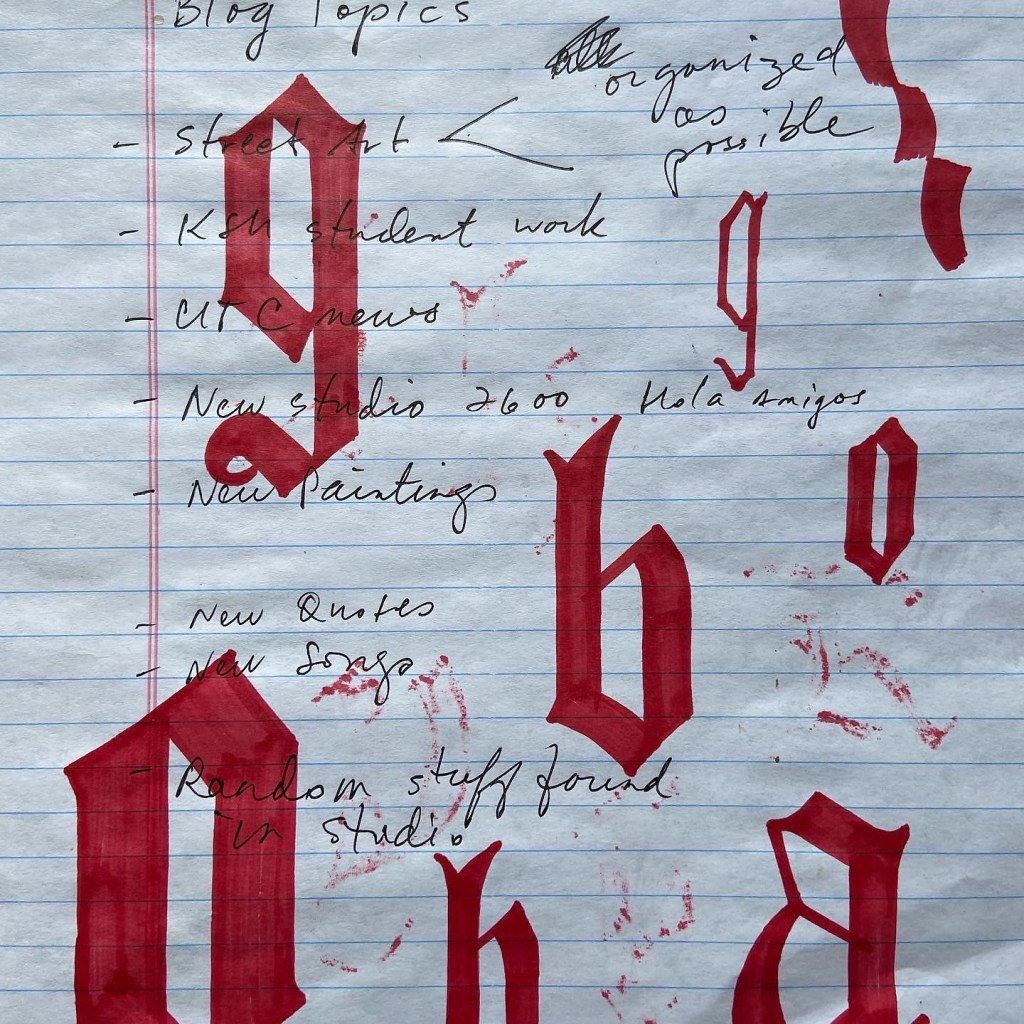 Blog Topics
organized
as
possible
- Street Art <
- KSU student work
- UTC news
- New studio 2600 Hola Amigos
- New Paintings
- New Quotes
- New Songs
- Random stuff found
in studio
g
g
b
o
a